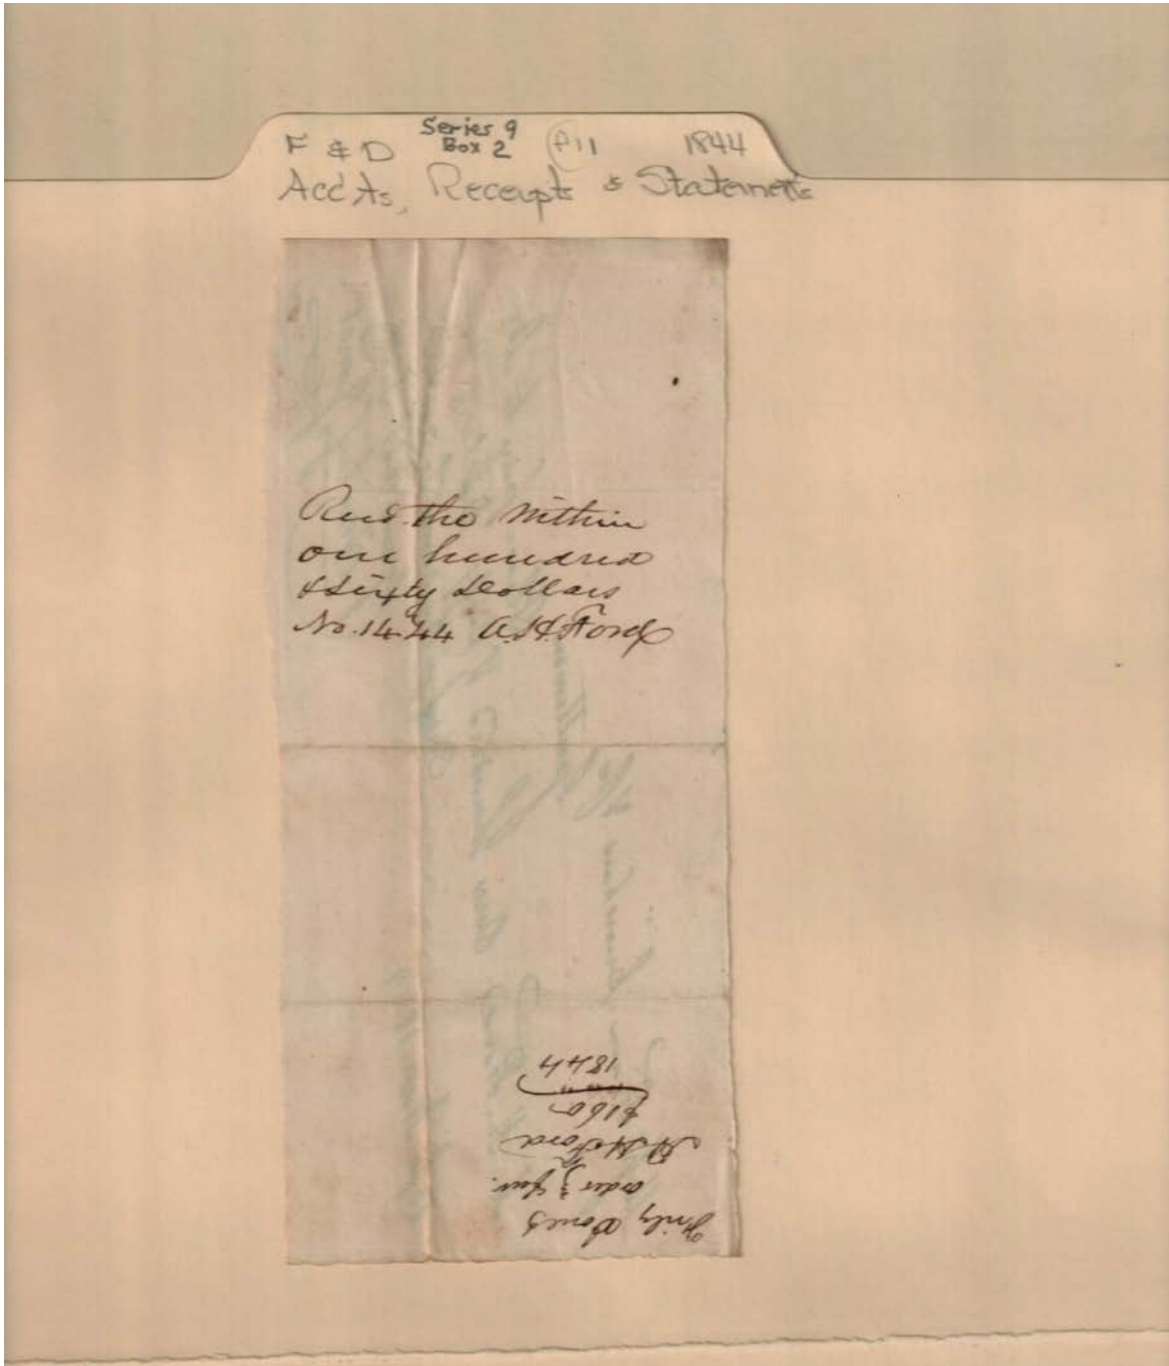 Series 9
F & D Box 2 F11 1844
Acc'ts, Receipts & Statements
Recd. the Within
one hundred
& Sixty Dollars
No. 14.44 A. H. Ford
order
A. H. Ford
$160
1844